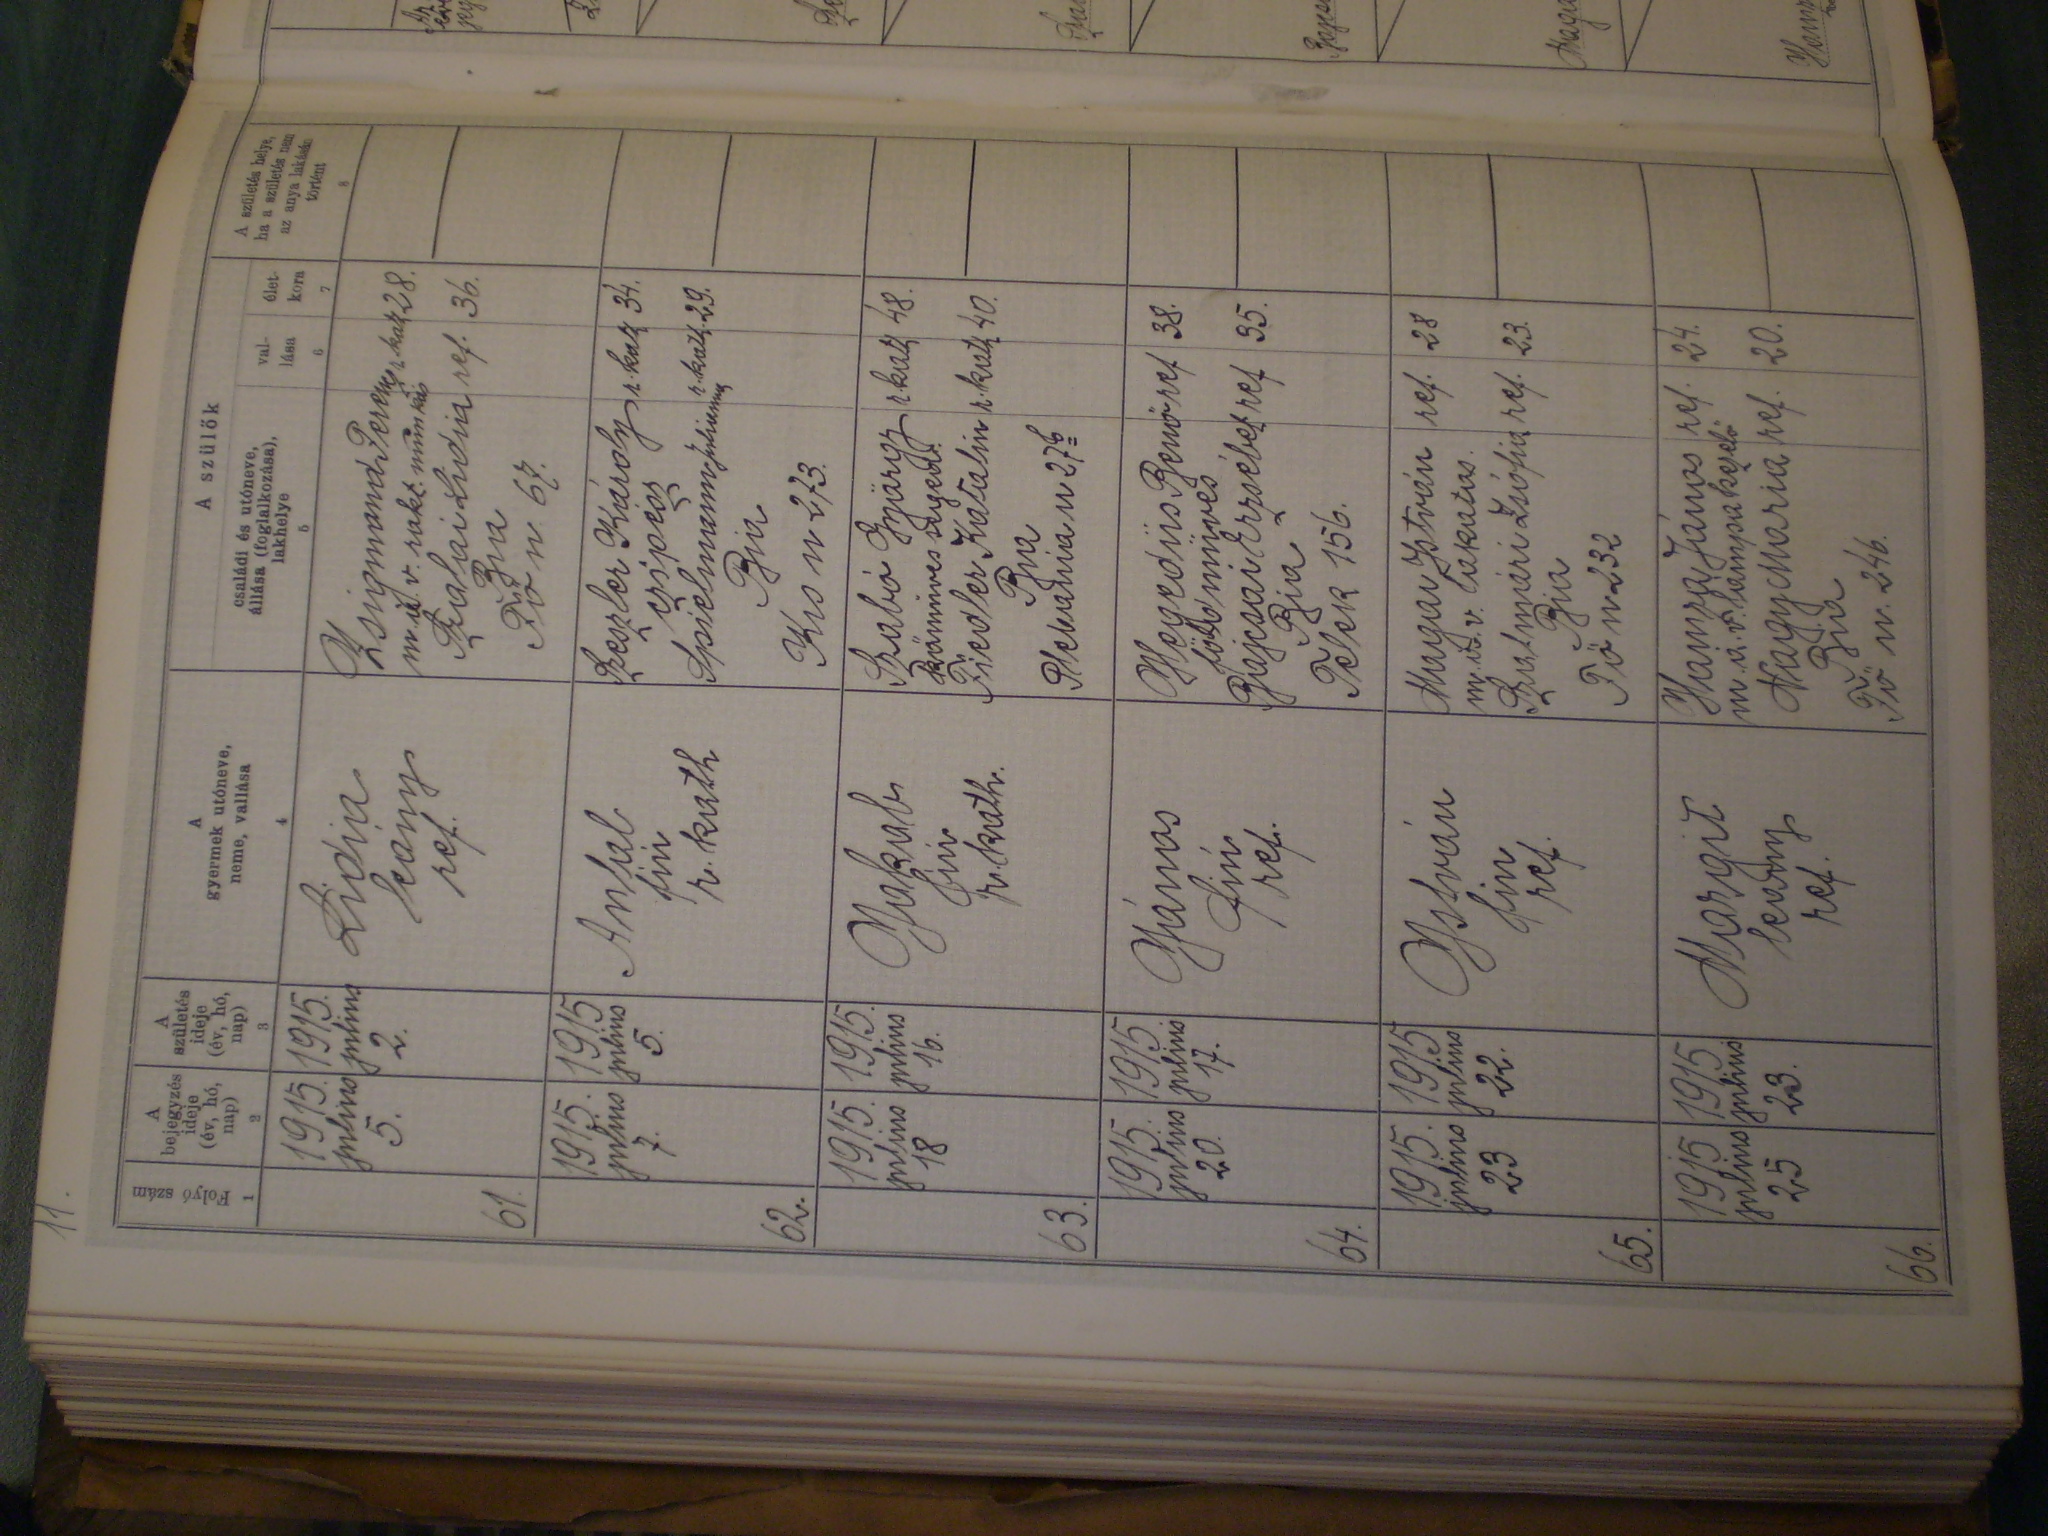 11.
Folyó szám
1
A
bejegyzés
ideje
(év, hó,
nap)
2
A
születés
ideje
(év, hó,
nap)
3
A
gyermek utóneve,
neme, vallása
4
A szülők
családi és utóneve,
állása (foglalkozása),
lakhelye
5
val-
lása
6
élet-
kora
7
A születés helye,
ha a születés nem
az anya lakásán
történt
8
61.
1915.
julius
5.
1915.
julius
2.
Lidia
leány
ref.
Zsigmond Ferencz r. kath 28.
m. á. v. rakt. munkás
Szalai Lidia ref. 36.
Bia
Fő u 67.
62.
1915.
julius
7.
1915
julius
5.
Antal
fiú
r. kath
Leszler Károly r. kath 34.
czipész
Spielmann Julianna r. kath. 29.
Bia
Kis u 273.
63.
1915.
julius
18
1915.
julius
16.
Jakab
fiú
r. kath.
Szabó György r kath 48.
kőmíves segéd
Fiedler Katalin r. kath 40.
Bia
Plebánia u 276
64.
1915.
julius
20.
1915.
julius
17.
János
fiú
ref.
Hegedüs Benő ref 38.
földmüves
Bajcsai Erzsébet ref 35.
Bia
Telek 156.
65.
1915.
julius
23
1915
julius
22.
István
fiú
ref.
Magai István ref. 28
m. á. v. lakatos.
Szatmári Zsófia ref. 23.
Bia
Fő u 232
66.
1915
julius
25
1915
julius
23.
Margit
leány
ref.
Hamza János ref. 24.
m. á. v. lámpakezelő
Nagy Mária ref. 20.
Bia
Fő u. 246.